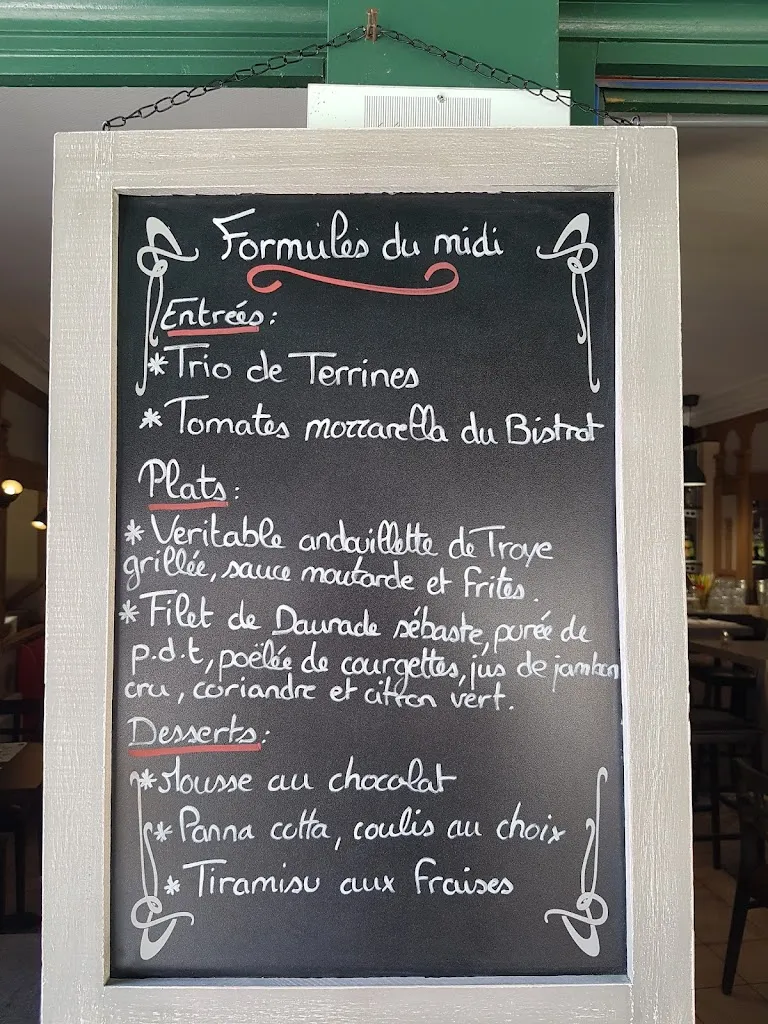 Formules du midi
Entrées :
* Trio de Terrines
* Tomates mozzarella du Bistrot
Plats :
* Veritable andouillette de Troye
grillée, sauce moutarde et frites.
* Filet de Daurade sébaste, purée de
p.d.t, poëlée de courgettes, jus de jambon
cru, coriandre et citron vert.
Desserts :
* Mousse au chocolat
* Panna cotta, coulis au choix
* Tiramisu aux fraises